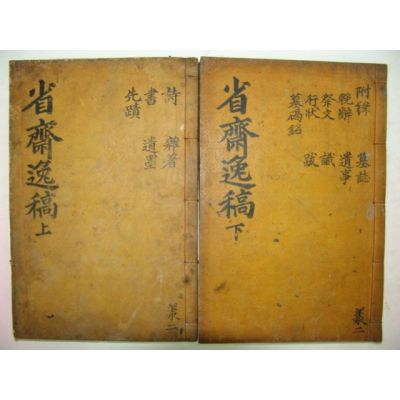 省齋逸稿 上
詩 雜著
書 遺墨
先蹟
省齋逸稿 下
附錄 墓誌
輓辭 遺事
祭文 識
行狀 跋
墓碣銘